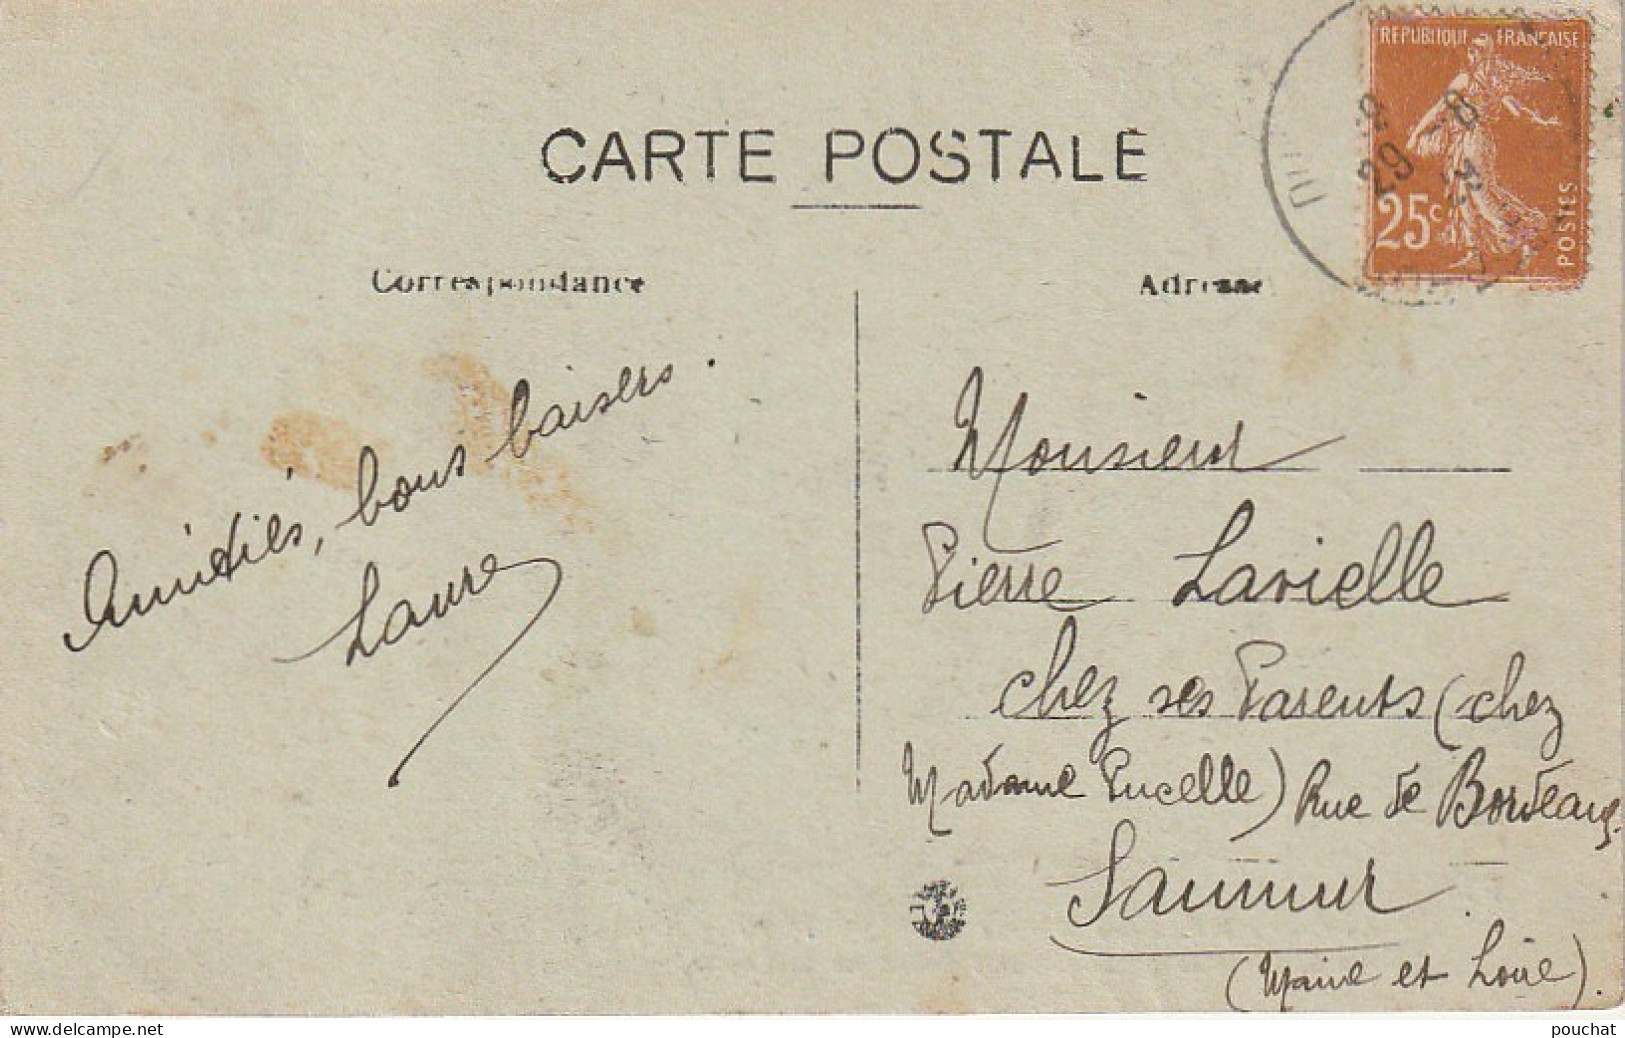 CARTE POSTALE
REPUBLIQUE FRANCAISE
25c
POSTES
29 - 8
Correspondance
Adresse
Amitiés, bons baisers.
Laure
Monsieur
Pierre Lavielle
chez ses Parents (chez
Madame Pucelle) Rue de Bordeaux.
Saumur
(Maine et Loire).
www.delcampe.net
pouchat